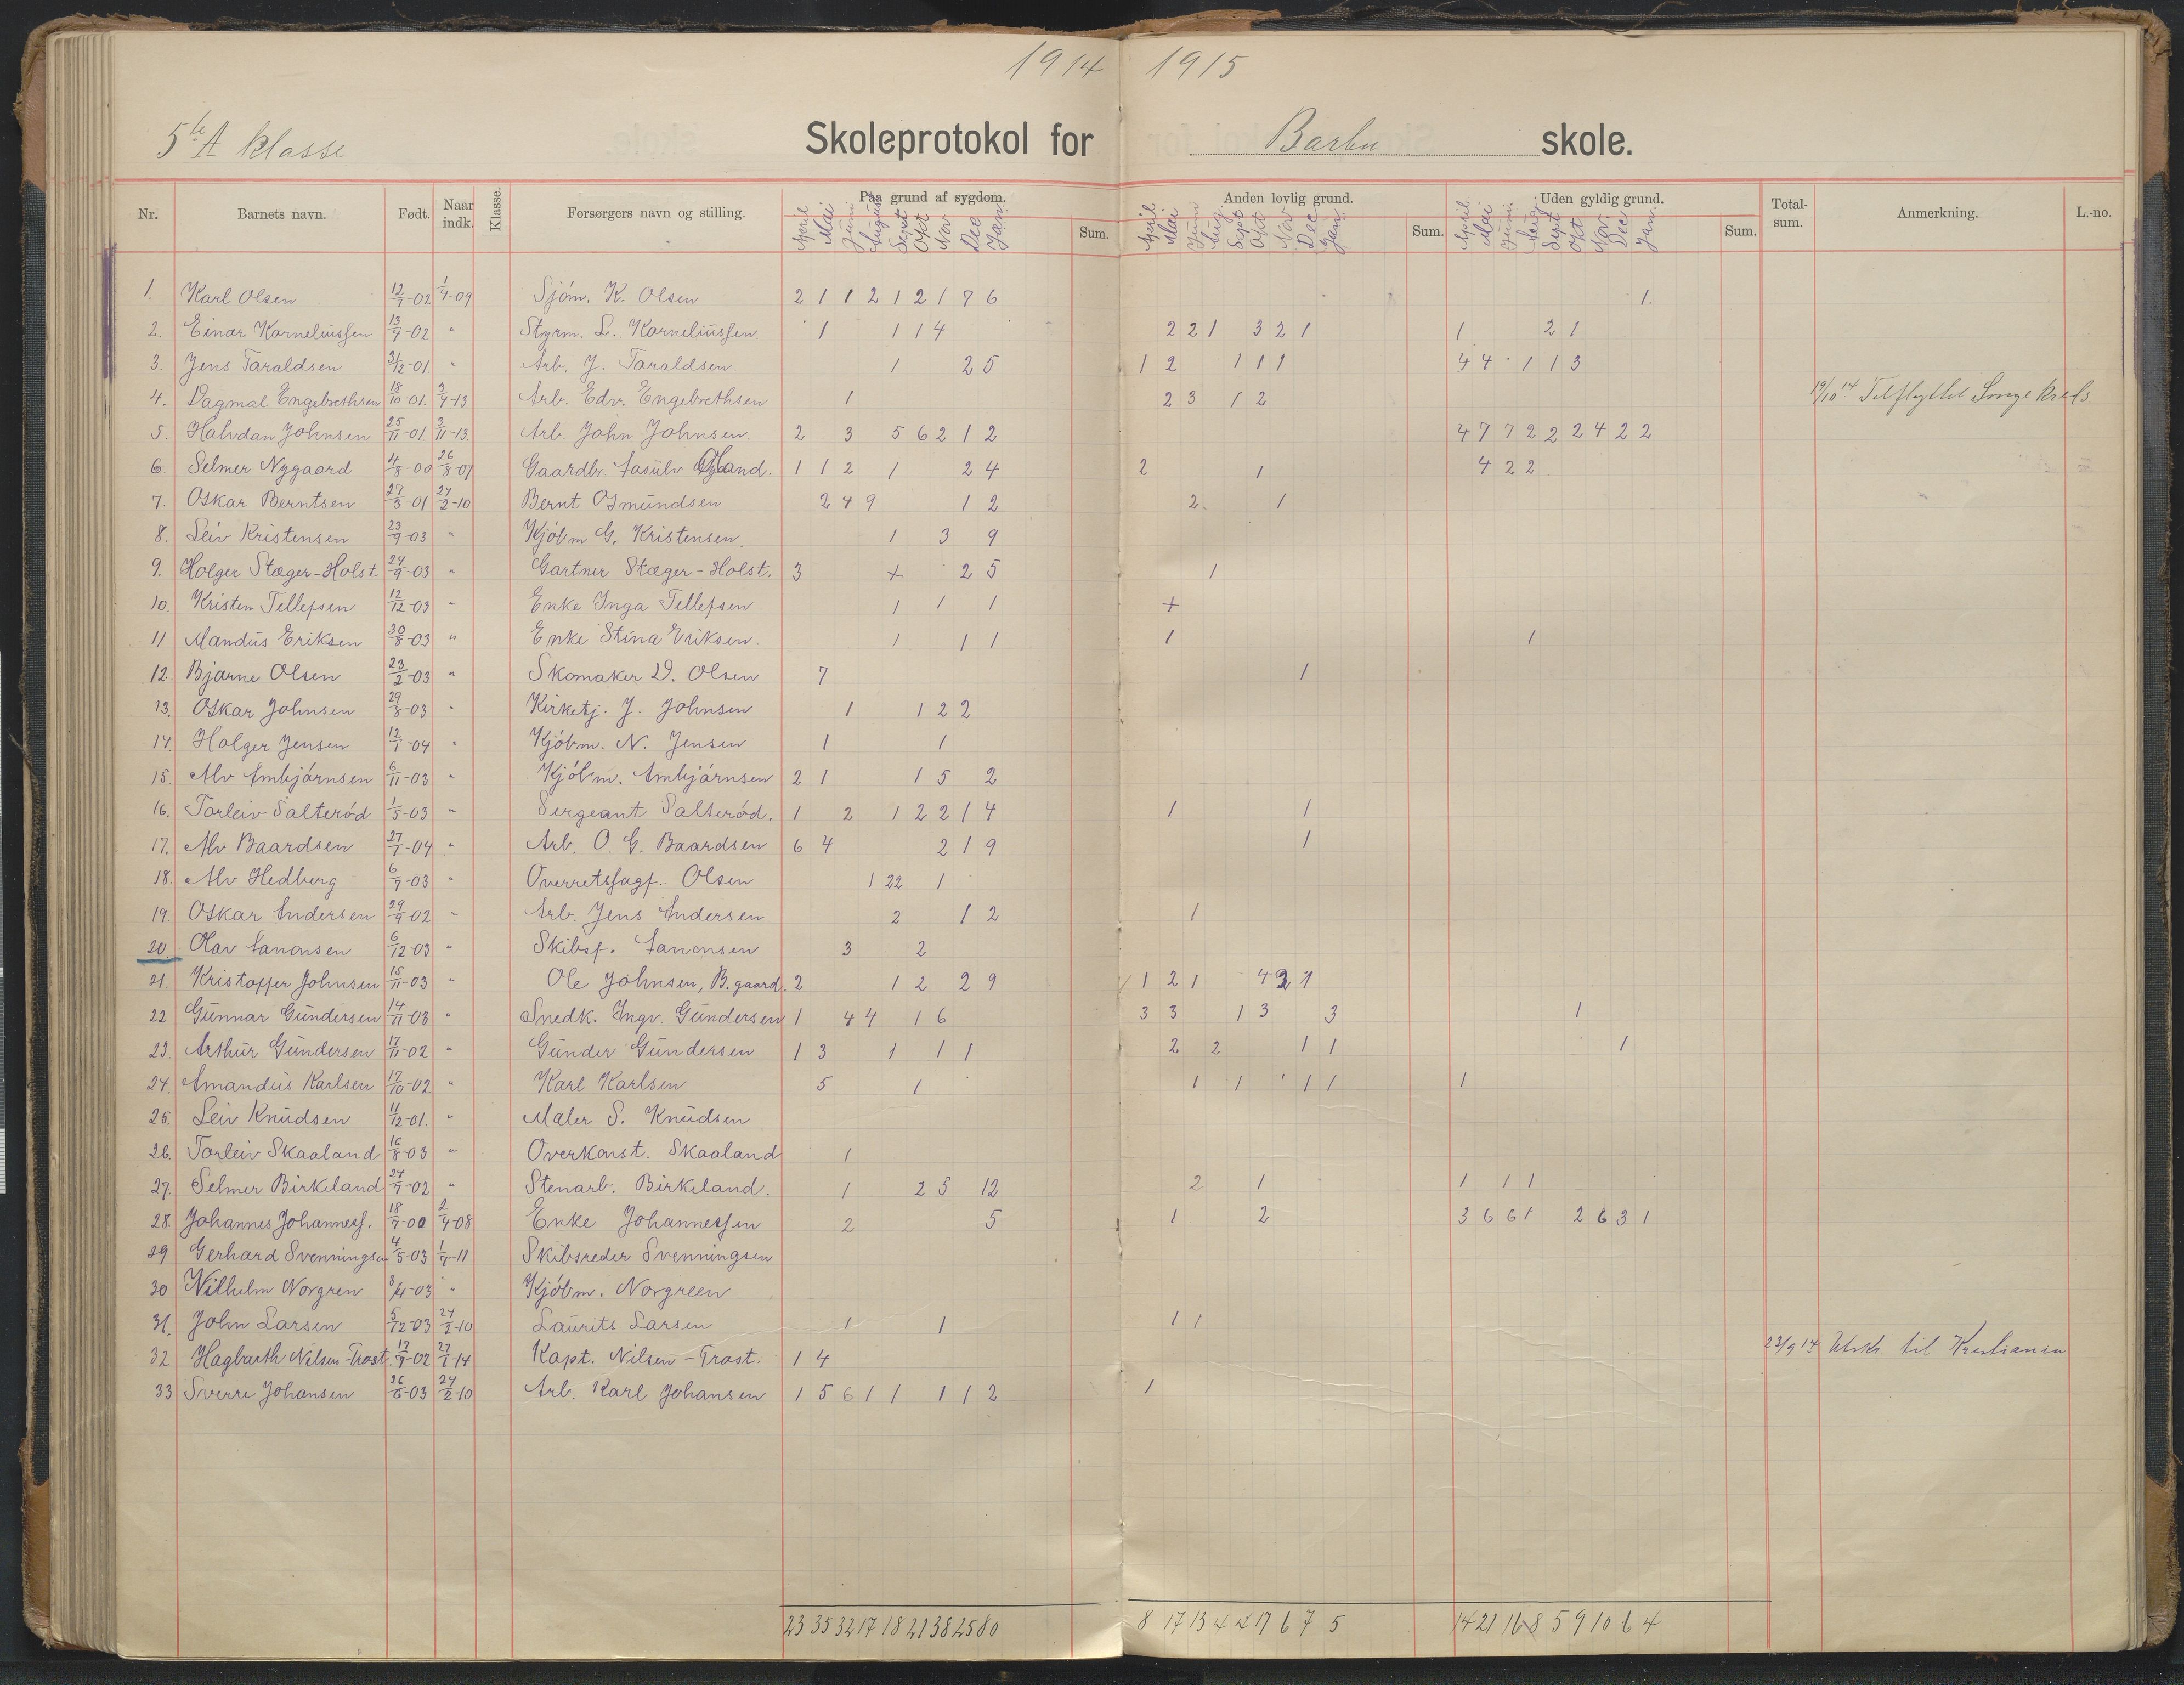 1914 1915
5te A klasse Skoleprotokol for Barbu skole.
Nr. Barnets navn. Født. Naar indk. Klasse. Forsørgers navn og stilling. Paa grund af sygdom. Sum. Anden lovlig grund. Sum. Uden gyldig grund. Sum. Total-sum. Anmerkning. L.-no.
April Mai Juni August Sept Okt Nov Dec Jan. April Mai Juni Aug. Sept Okt Nov Dec Jan. April Mai Juni Aug Sept Okt Nov Dec Jan.
1. Karl Olsen 12/1-02 1/4-09 Sjóm. K. Olsen 2 1 1 2 1 2 1 7 6 1.
2. Einar Korneliussen 13/9-02 " Styrm. L. Korneliussen. 1 1 1 4 2 2 1 3 2 1 1 2 1
3. Jens Taraldsen 31/12-01 " Arb. J. Taraldsen. 1 2 5 1 2 1 1 1 4 4 1 1 3
4. Dagmal Engebrethsen 18/10-01. 3/4-13 Arb. Edv. Engebrethsen 1 2 3 1 2 19/10 14 Tilflyttet Songe kreds
5. Halvdan Johnsen 25/11-01. 3/11-13. Arb. John Johnsen. 2 3 5 6 2 1 2 4 7 7 2 2 2 4 2 2
6. Selmer Nygaard 4/8-00 26/8-07 Gaardbr. Aasulv 1 1 2 1 2 4 2 1 4 2 2
7. Oskar Berntsen 27/3-01 24/2-10 Bernt Osmundsen 2 4 9 1 2 2. 1
8. Leiv Kristensen 23/9-03 " Kjóbm G. Kristensen. 1 3 9
9. Holger Stæger-Holst 24/9-03 " Gartner Stæger-Holst. 3 + 2 5 1
10. Kristen Tellefsen 12/12-03 " Enke Inga Tellefsen 1 1 1 +
11 Mandus Eriksen 30/8-03 " Enke Stina Eriksen. 1 1 1 1 1
12. Bjarne Olsen 23/2-03 " Skomaker D. Olsen 7 1
13. Oskar Johnsen 29/8-03 " Kirketj. J. Johnsen 1 1 2 2
14. Holger Jensen 12/1-04 " Kjóbm. N. Jensen 1 1
15. Alv Ambjórnsen 6/11-03 " Kjóbm. Ambjórnsen 2 1 1 5 2
16. Torleiv Salteród 1/5-03 " Sergeant Salteród. 1 2 1 2 2 1 4 1 1
17. Alv Baardsen 27/1-04 " Arb. O. G. Baardsen 6 4 2 1 9 1
18. Alv Hedberg 6/7-03 " Overretssagf. Olsen 1 22 1
19. Oskar Andersen 29/9-02 " Arb. Jens Andersen 2 1 2 1
20. Olav Aanonsen 6/12-03 " Skibsf. Aanonsen 3 2
21. Kristoffer Johnsen 15/11-03 " Ole Johnsen, B.gaard. 2 1 2 2 9 1 2 1 4 2 1
22 Gunnar Gundersen 14/11-03 " Snedk. Ingv. Gundersen 1 4 4 1 6 3 3 1 3 3 1
23. Arthur Gundersen 17/11-02 " Gunder Gundersen 1 3 1 1 1 2 2 1 1 1
24. Amandus Karlsen 17/10-02 " Karl Karlsen 5 1 1 1 1 1 1
25. Leiv Knudsen 11/12-01. " Maler S. Knudsen
26. Torleiv Skaaland 16/8-03 " Overkonst. Skaaland 1
27. Selmer Birkeland 24/7-02 " Stenarb. Birkeland. 1 2 5 12 2 1 1 1 1
28. Johannes Johanness. 18/7-00 2/4-08 Enke Johannessen 2 5 1 2 3 6 6 1 2 6 3 1
29 Gerhard Svenningsen 4/5-03 1/7-11 Skibsreder Svenningsen
30 Vilhelm Norgren 3/4-03 " Kjóbm. Norgreen
31. John Larsen 5/12-03 24/2-10 Laurits Larsen 1 1 1 1
32 Hagbarth Nilsen-Trost. 17/7-02 27/1-14 Kapt. Nilsen-Trost. 1 4 23/9 14 Utskr. til Kristiania
33 Sverre Johansen 26/6-03 24/2-10 Arb. Karl Johansen 1 5 6 1 1 1 1 2 1
23 35 32 17 18 21 38 25 80 8 17 13 4 2 17 6 7 5 14 21 16 8 5 9 10 6 4